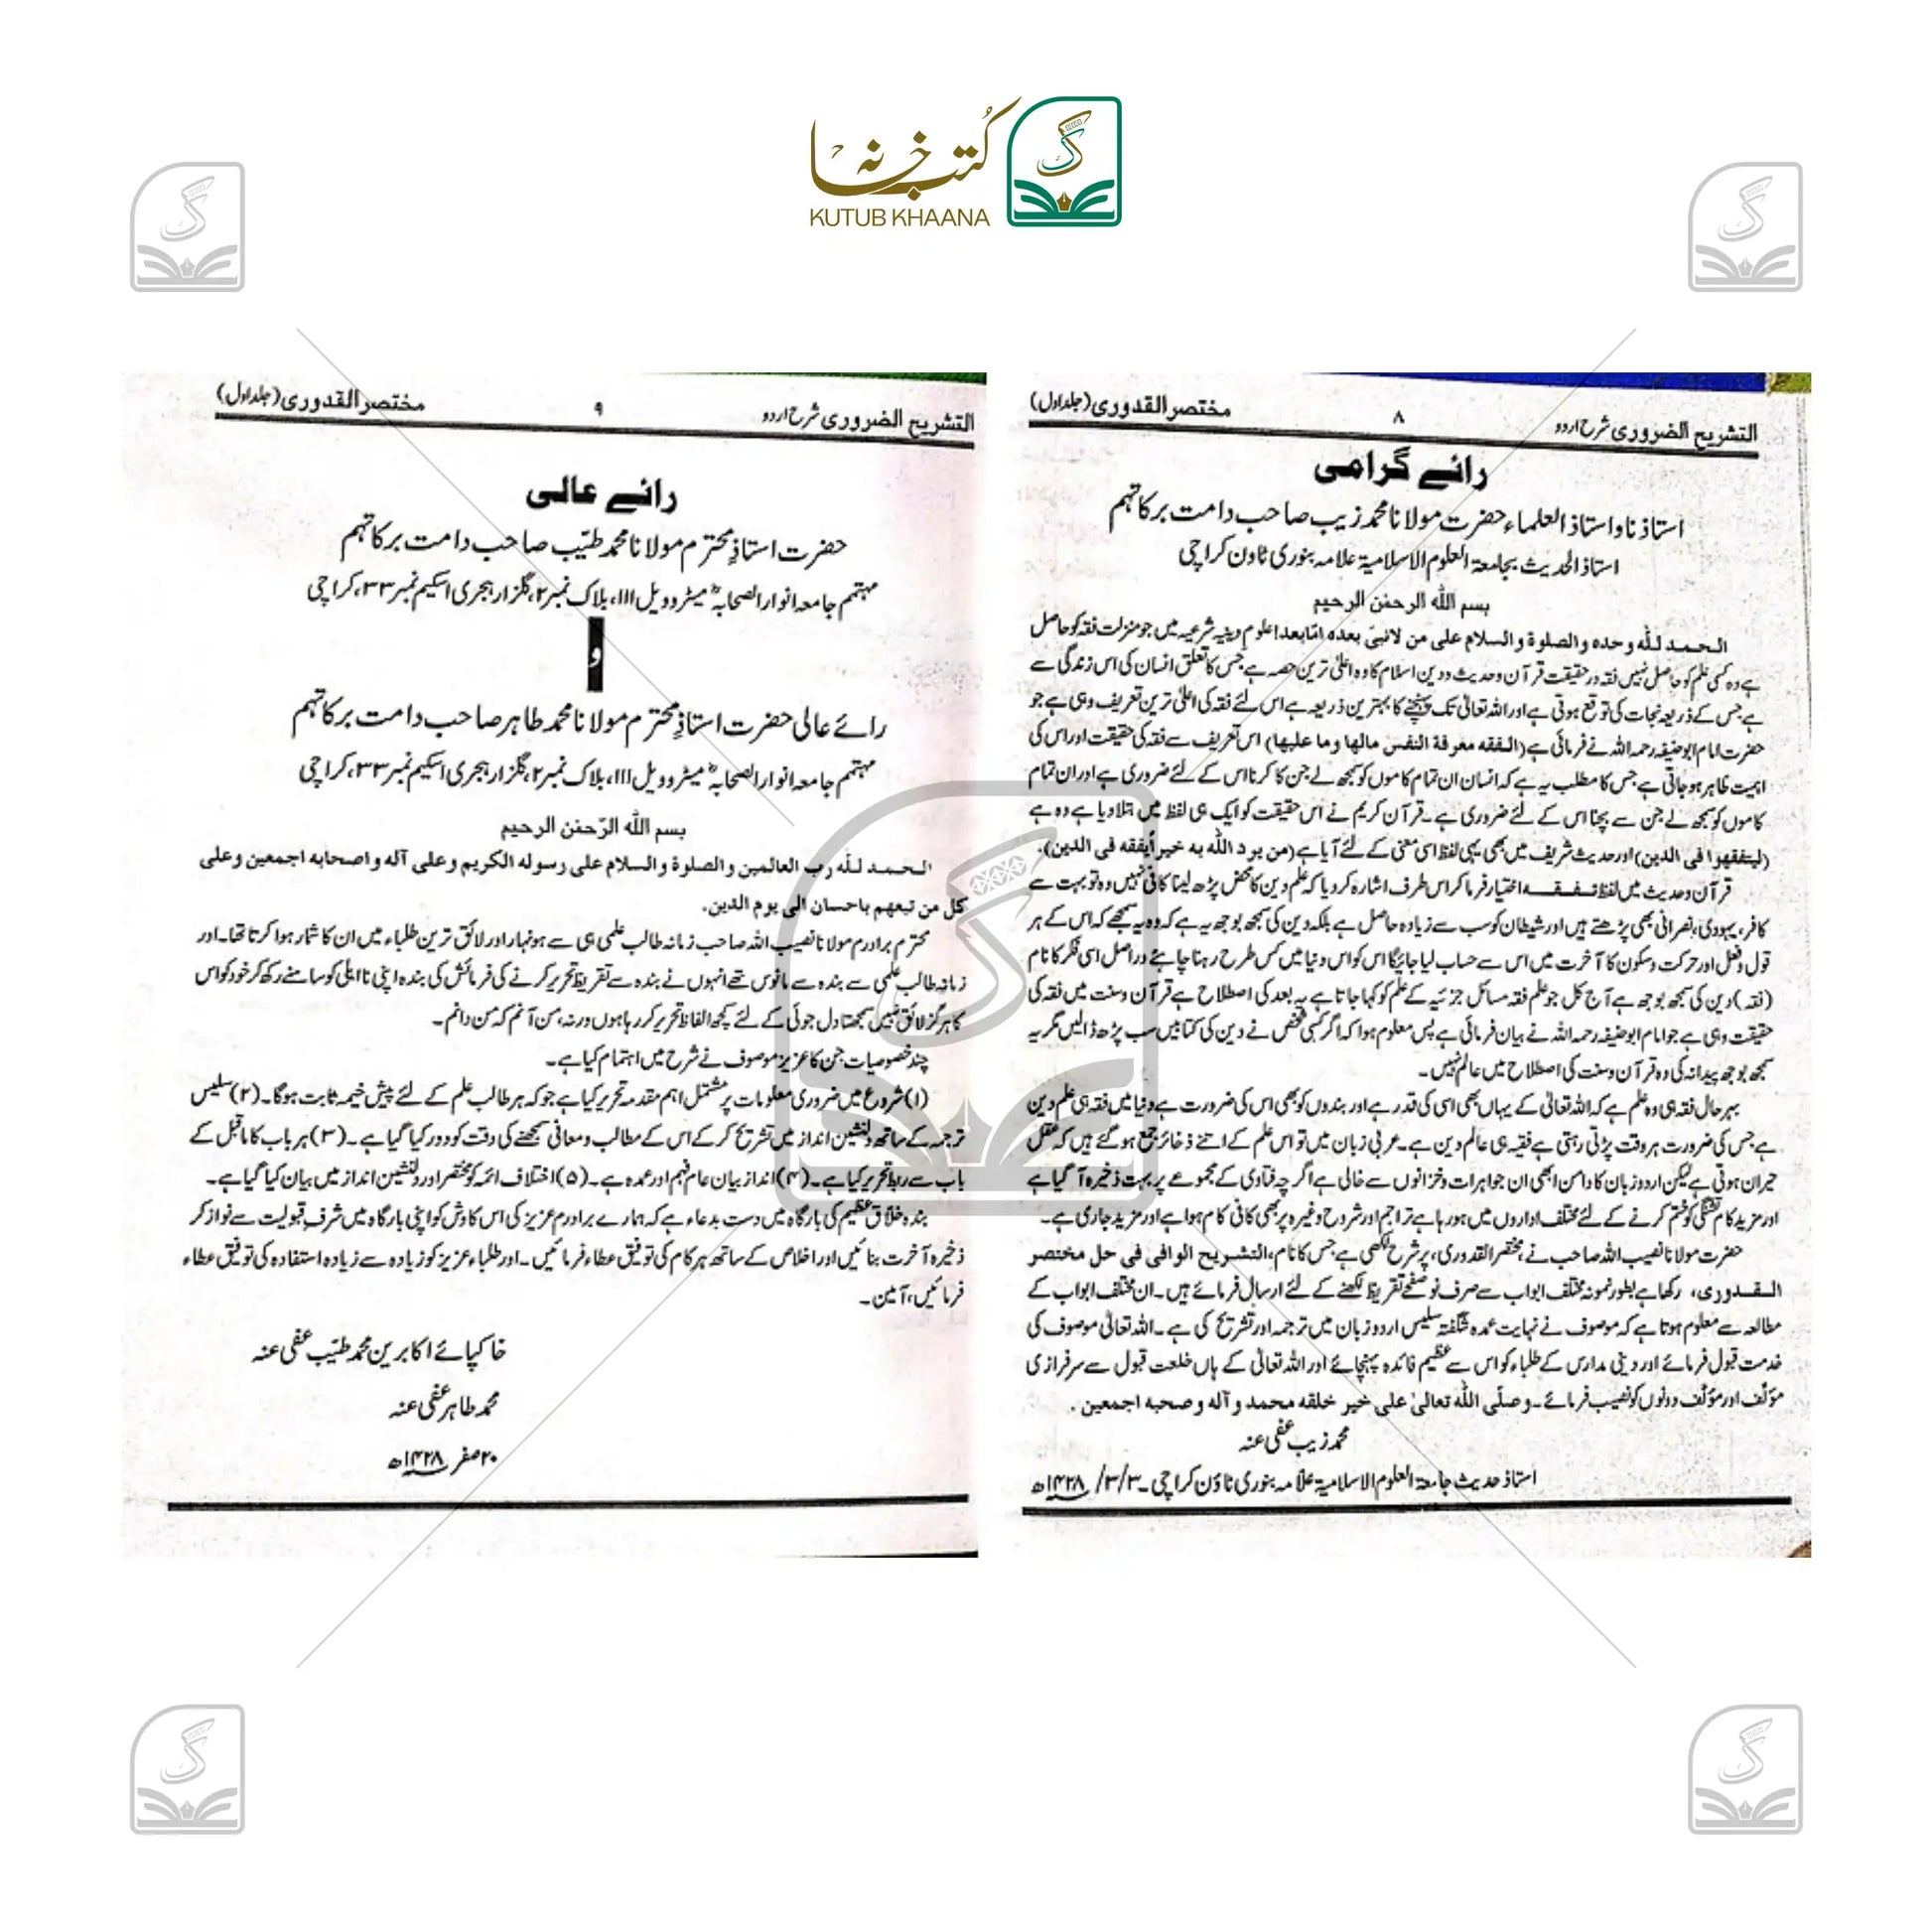 کُتب خانہ
KUTUB KHAANA
التشریح الضروری شرح اردو ۸ مختصر القدوری (جلد اول)
رائے گرامی
استاذنا و استاذ العلماء حضرت مولانا محمد زیب صاحب دامت برکاتہم
استاذ الحدیث بجامعة العلوم الاسلامیة علامہ بنوری ٹاون کراچی
بسم اللہ الرحمٰن الرحیم
الحمد للّٰہ وحدہ والصلوة والسلام علی من لانبیّ بعدہ امّابعد! علوم دینیہ شرعیہ میں جو منزلت فقہ کو حاصل
ہے وہ کسی علم کو حاصل نہیں فقہ در حقیقت قرآن وحدیث ودین اسلام کا وہ اعلیٰ ترین حصہ ہے جس کا تعلق انسان کی اس زندگی سے
ہے جس کے ذریعہ نجات کی توقع ہوتی ہے اور اللہ تعالیٰ تک پہنچنے کا بہترین ذریعہ ہے اس لئے فقہ کی اعلیٰ ترین تعریف وہی ہے جو
حضرت امام ابو حنیفہ رحمہ اللہ نے فرمائی ہے (الفقه معرفة النفس مالها وما علیها) اس تعریف سے فقہ کی حقیقت اور اس کی
اہمیت ظاہر ہو جاتی ہے جس کا مطلب یہ ہے کہ انسان ان تمام کاموں کو سمجھ لے جن کا کرنا اس کے لئے ضروری ہے اور ان تمام
کاموں کو سمجھ لے جن سے بچنا اس کے لئے ضروری ہے۔ قرآن کریم نے اس حقیقت کو ایک ہی لفظ میں بتلا دیا ہے وہ ہے
(لیتفقهوا فی الدین) اور حدیث شریف میں بھی یہی لفظ اسی معنی کے لئے آیا ہے (من یرد اللّٰه به خیراً یفقه فی الدین)۔
قرآن وحدیث میں لفظ تفقه اختیار فرما کر اس طرف اشارہ کر دیا کہ علم دین کا محض پڑھ لینا کافی نہیں وہ تو بہت سے
کافر، یہودی، نصرانی بھی پڑھتے ہیں اور شیطان کو سب سے زیادہ حاصل ہے بلکہ دین کی سمجھ بوجھ یہ ہے کہ وہ یہ سمجھے کہ اس کے ہر
قول وفعل اور حرکت وسکون کا آخرت میں اس سے حساب لیا جائیگا اس کو اس دنیا میں کس طرح رہنا چاہئے در اصل اسی فکر کا نام
(فقہ) دین کی سمجھ بوجھ ہے آج کل جو علم فقہ مسائل جزئیہ کے علم کو کہا جاتا ہے یہ بعد کی اصطلاح ہے قرآن وسنت میں فقہ کی
حقیقت وہی ہے جو امام ابو حنیفہ رحمہ اللہ نے بیان فرمائی ہے پس معلوم ہوا کہ اگر کسی شخص نے دین کی کتابیں سب پڑھ ڈالیں مگر یہ
سمجھ بوجھ پیدا نہ کی وہ قرآن وسنت کی اصطلاح میں عالم نہیں۔
بہر حال فقہ ہی وہ علم ہے کہ اللہ تعالیٰ کے یہاں بھی اسی کی قدر ہے اور بندوں کو بھی اس کی ضرورت ہے دنیا میں فقہ ہی علم دین
ہے جس کی ضرورت ہر وقت پڑتی رہتی ہے فقیہ ہی عالم دین ہے۔ عربی زبان میں تو اس علم کے اتنے ذخائر جمع ہو گئے ہیں کہ عقل
حیران ہوتی ہے لیکن اردو زبان کا دامن ابھی ان جواہرات وخزانوں سے خالی ہے اگر چہ فتاوی کے مجموعے پر بہت ذخیرہ آ گیا ہے
اور مزید کام تشنگی کو ختم کرنے کے لئے مختلف اداروں میں ہو رہا ہے تراجم اور شروح وغیرہ پر بھی کافی کام ہوا ہے اور مزید جاری ہے۔
حضرت مولانا نصیب اللہ صاحب نے، مختصر القدوری، پر شرح لکھی ہے جس کا نام، التشریح الوافی فی حل مختصر
القدوری، رکھا ہے بطور نمونہ مختلف ابواب سے صرف نو صفحے تقریظ لکھنے کے لئے ارسال فرمائے ہیں۔ ان مختلف ابواب کے
مطالعہ سے معلوم ہوتا ہے کہ موصوف نے نہایت عمدہ شگفتہ سلیس اردو زبان میں ترجمہ اور تشریح کی ہے۔ اللہ تعالیٰ موصوف کی
خدمت قبول فرمائے اور دینی مدارس کے طلباء کو اس سے عظیم فائدہ پہنچائے اور اللہ تعالیٰ کے ہاں خلعت قبول سے سرفرازی
مؤلَّف اور مؤلِّف دونوں کو نصیب فرمائے۔ وصلّی اللّٰه تعالیٰ علی خیر خلقه محمد وآله وصحبه اجمعین۔
محمد زیب عفی عنہ
استاذ حدیث جامعة العلوم الاسلامیة علّامہ بنوری ٹاؤن کراچی ۔۳/۳/ ۱۴۲۸ھ
التشریح الضروری شرح اردو ۹ مختصر القدوری (جلد اول)
رائے عالی
حضرت استاذِ محترم مولانا محمد طیّب صاحب دامت برکاتہم
مہتمم جامعہ انوار الصحابہؓ میٹرو ویل III، بلاک نمبر۲، گلزار ہجری اسکیم نمبر ۳۳، کراچی
و
رائے عالی حضرت استاذِ محترم مولانا محمد طاہر صاحب دامت برکاتہم
مہتمم جامعہ انوار الصحابہؓ میٹرو ویل III، بلاک نمبر۲، گلزار ہجری اسکیم نمبر ۳۳، کراچی
بسم اللہ الرّحمٰن الرحیم
الحمد للّٰه رب العالمین والصلوة والسلام علی رسوله الکریم وعلی آله واصحابه اجمعین وعلی
کل من تبعهم باحسان الی یوم الدین۔
محترم برادرم مولانا نصیب اللہ صاحب زمانہ طالب علمی ہی سے ہونہار اور لائق ترین طلباء میں ان کا شمار ہوا کرتا تھا۔ اور
زمانہ طالب علمی سے بندہ سے مانوس تھے انہوں نے بندہ سے تقریظ تحریر کرنے کی فرمائش کی بندہ اپنی نااہلی کو سامنے رکھ کر خود کو اس
کا ہر گز لائق نہیں سمجھتا دل جوئی کے لئے کچھ الفاظ تحریر کر رہا ہوں ورنہ، من آنم کہ من دانم۔
چند خصوصیات جن کا عزیز موصوف نے شرح میں اہتمام کیا ہے۔
(۱) شروع میں ضروری معلومات پر مشتمل اہم مقدمہ تحریر کیا ہے جو کہ ہر طالب علم کے لئے پیش خیمہ ثابت ہوگا۔ (۲) سلیس
ترجمہ کے ساتھ دلنشین انداز میں تشریح کر کے اس کے مطالب ومعانی سمجھنے کی دقت کو دور کیا گیا ہے۔ (۳) ہر باب کا ماقبل کے
باب سے ربط تحریر کیا ہے۔ (۴) انداز بیان عام فہم اور عمدہ ہے۔ (۵) اختلاف ائمہ کو مختصر اور دلنشین انداز میں بیان کیا گیا ہے۔
بندہ خلاق عظیم کی بارگاہ میں دست بدعاء ہے کہ ہمارے برادرم عزیز کی اس کاوش کو اپنی بارگاہ میں شرفِ قبولیت سے نواز کر
ذخیرہ آخرت بنائیں اور اخلاص کے ساتھ ہر کام کی توفیق عطاء فرمائیں۔ اور طلباء عزیز کو زیادہ سے زیادہ استفادہ کی توفیق عطاء
فرمائیں، آمین۔
خاکپائے اکابرین محمد طیّب عفی عنہ
محمد طاہر عفی عنہ
۲۰ صفر ۱۴۲۸ھ